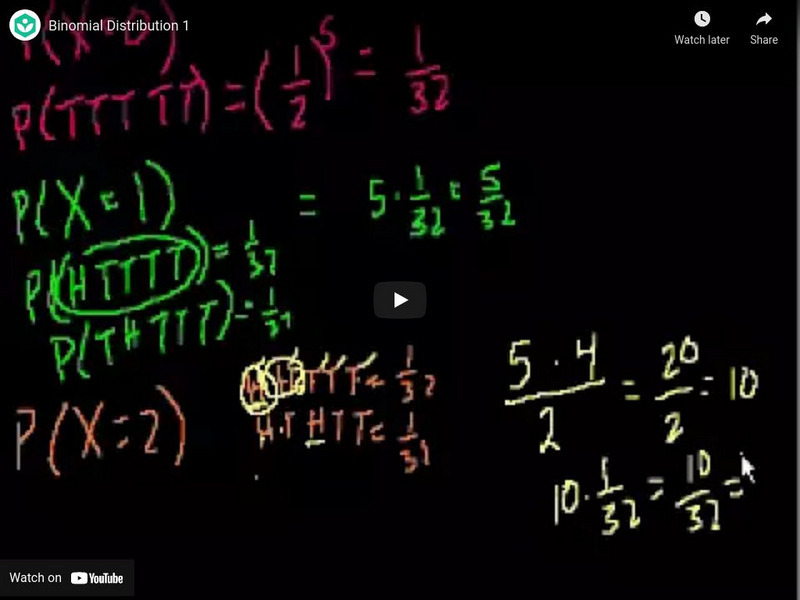 Binomial Distribution 1
Watch later
Share
P(X=0)
P(TTTTT) = (1/2)^5 = 1/32
P(X=1) = 5·1/32 = 5/32
P(HTTTT) = 1/32
P(THTTT) = 1/32
P(X=2)
HHTTT = 1/32
HTHTT = 1/32
5·4/2 = 20/2 = 10
10·1/32 = 10/32 =
Watch on YouTube